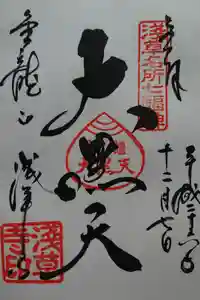 奉拝
淺草名所七福神
平成二十
十二月七日
大黒天
金龍山
浅草寺
淺草寺印